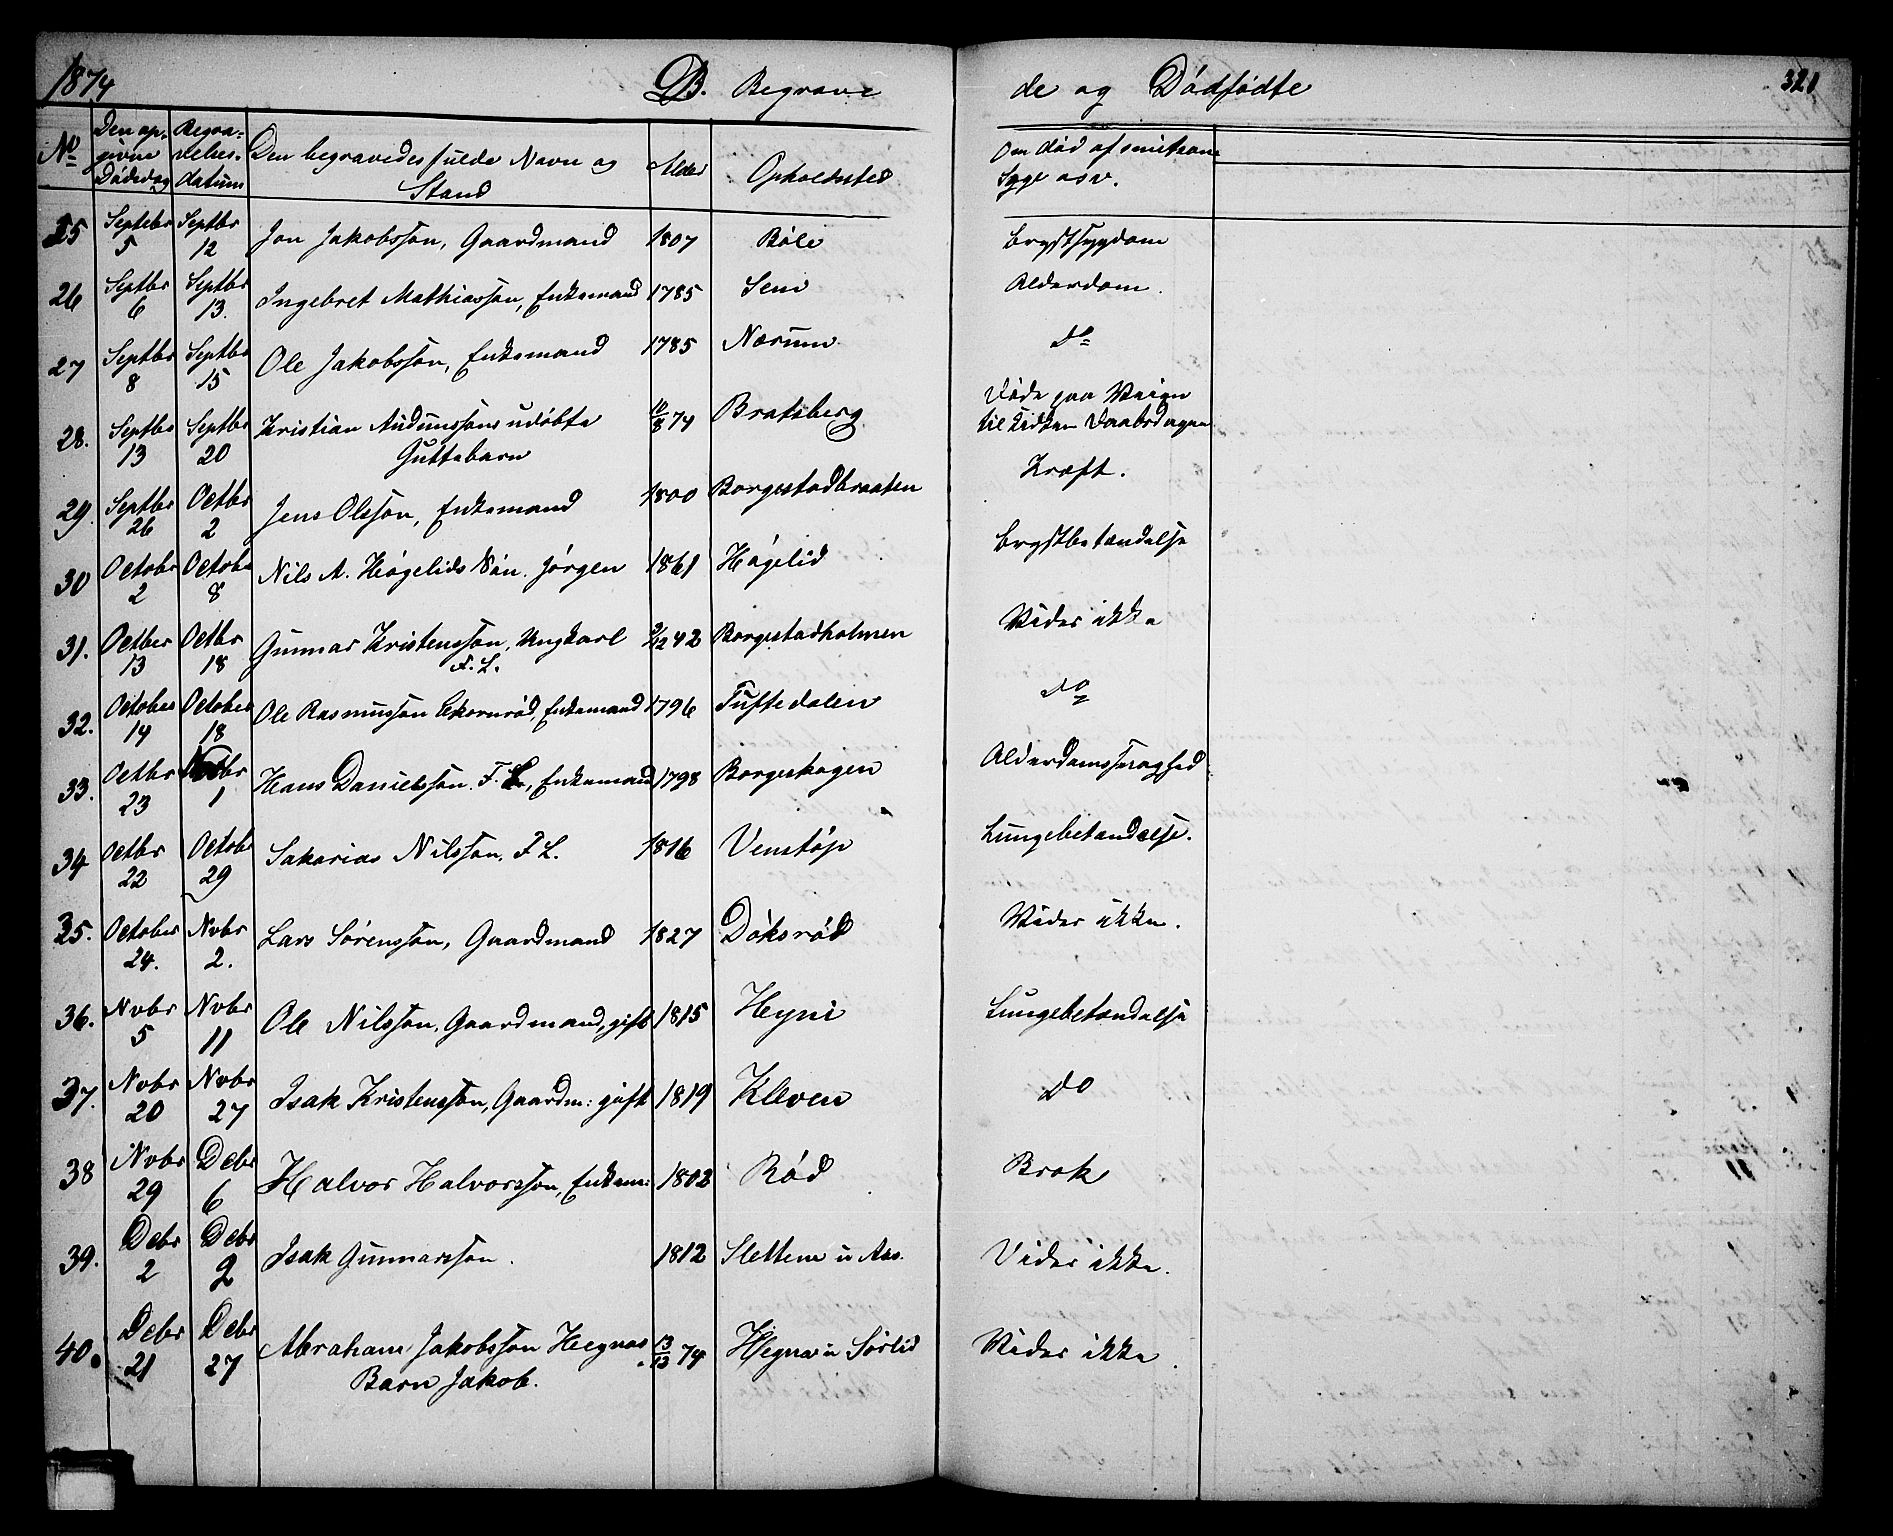 1874 B. Begravede og Dødfødte 321
No Den opgivne Dødsdag Begravelsesdatum Den begravedes fulde Navn og Stand Alder Opholdssted Om død af smitsom Syge osv.
25 Septebr 5 Septbr 12 Jon Jakobsson, Gaardmand 1807 Bøle Brystsygdom
26 Septbr 6 Septbr 13. Ingebret Mathiasson, Enkemand 1785 Sem Alderdom.
27 Septbr 8 Septbr 15 Ole Jakobsson, Enkemand 1785 Nærum do
28. Septbr 13 Septbr 20 Kristian Audunssons udøbte 10/8 74 Bratsberg Døde paa Veien
Guttebarn til Kirken Daabsdagen
29. Septbr 26 Octbr 2 Jens Olsson, Enkemand 1800 Borgestadbraaten Kræft.
30 Octobr 2 Octobr 8 Nils A. Høgelids Søn. Jørgen 1861 Høgelid Brystbetændelse
31. Octber 13 Octbr 18 Gunnar Kristensson, Ungkarl 2/12 42 Borgestadholmen Vides ikke
F. L.
32. October 14 October 18 Ole Rasmusson Ekornrød, Enkemand 1796 Tuftedalen do
33. Octbr 23 Novbr 1 Hans Danielsson. F. L., Enkemand 1798 Borgeskogen Alderdomssvaghed
34 Octbr 22 Octob 29 Sakarias Nilsson, F. L. 1816 Venstøp Lungebetændelse.
35. October 24. Nvbr 2. Lars Sørensson, Gaardmand 1827 Doksrød Vides ikke.
36. Nvbr 5 Nvbr 11 Ole Nilsson, Gaardmand, gift 1815 Heyni Lungebetændelse
37. Nvbr 20 Nvbr 27 Isak Kristensson, Gaardm: gift 1819 Kleven do
38 Nvbr 29 Debr 6 Halvor Halvorsson, Enkem: 1802 Rød Brok
39. Debr 2 Debr 9 Isak Gunnarsson. 1812 Slettene u Aas. Vides ikke.
40. Debr 21 Debr 27 Abraham Jakobsson Hegnas 13/12 74 Hegna u Sørlid Vides ikke.
Barn Jakob.